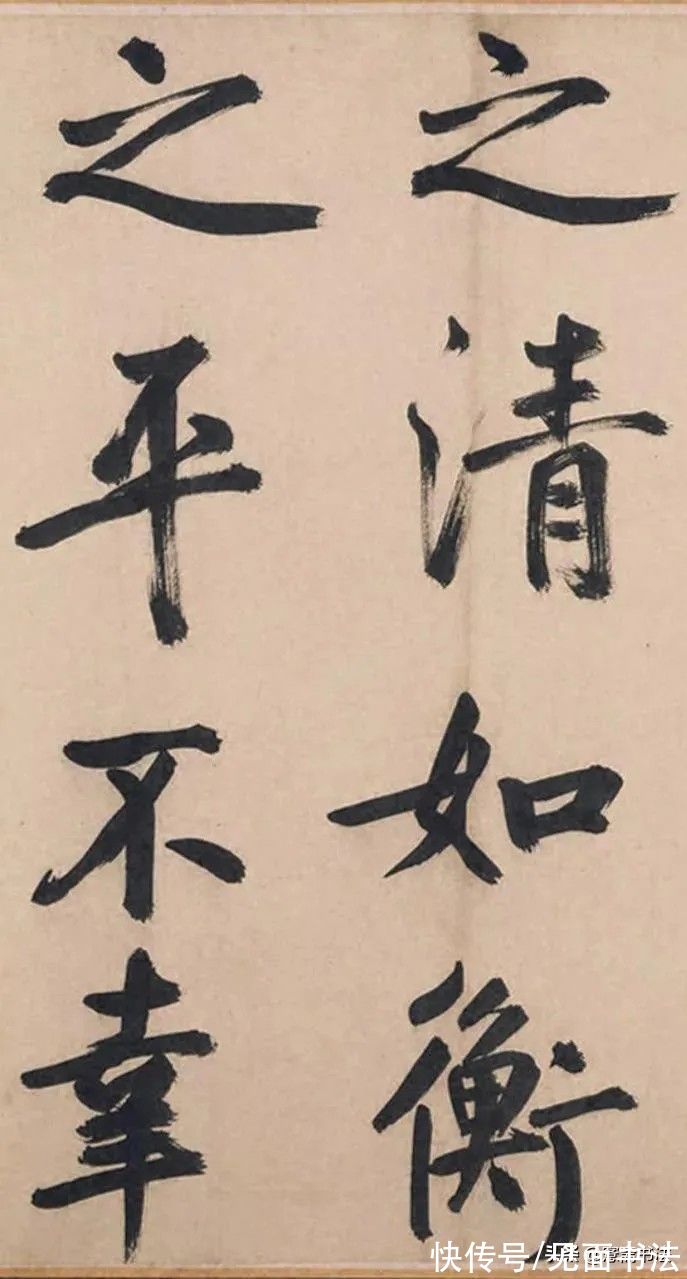 之清如衡
之平不幸
快传号/见面书法